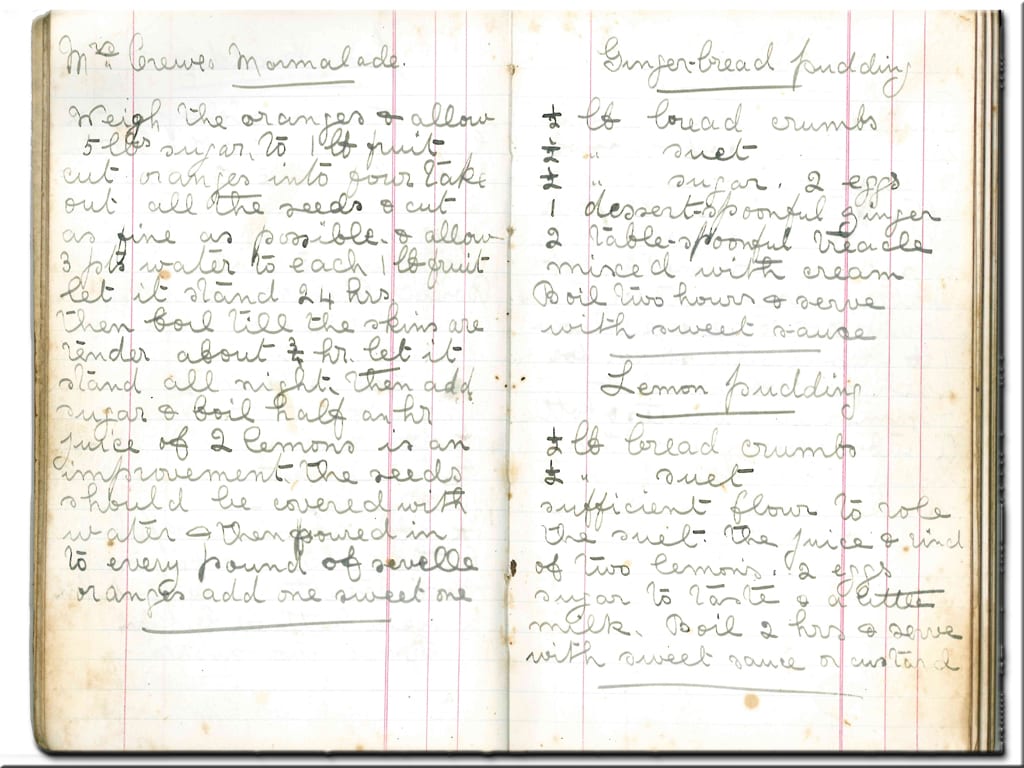 Mrs Crewes Marmalade.
Weigh the oranges & allow
5 lbs sugar, to 1 lb fruit
cut oranges into four take
out all the seeds & cut
as fine as possible. & allow
3 pts water to each 1 lb fruit
let it stand 24 hrs
then boil till the skins are
tender about ¾ hr. let it
stand all night. Then add
sugar & boil half an hr
juice of 2 lemons is an
improvement. the seeds
should be covered with
water & then poured in
to every pound of seville
oranges add one sweet one
Ginger-bread pudding
½ lb bread crumbs
½ " suet
½ " sugar. 2 eggs
1 dessert-spoonful ginger
2 table-spoonful treacle
mixed with cream
Boil two hours & serve
with sweet sauce
Lemon pudding.
½ lb bread crumbs
½ " suet
sufficient flour to role
the suet. The juice & rind
of two lemons. 2 eggs
sugar to taste & a little
milk. Boil 2 hrs & serve
with sweet sauce or custard